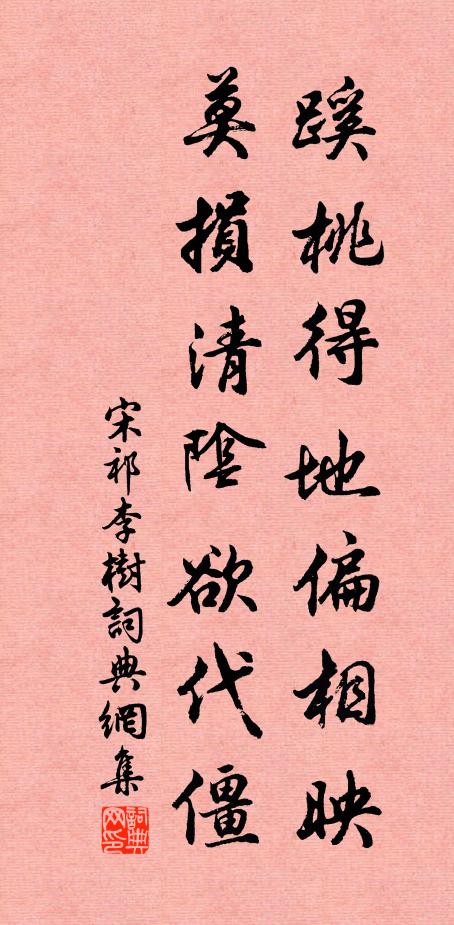 蹊桃得地偏相映
莫損清陰欲代僵
宋祁李樹詞典網集
詞典网印